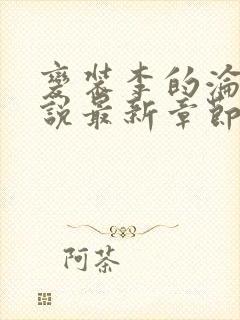 變裝李的淪
說最新章節
阿茶